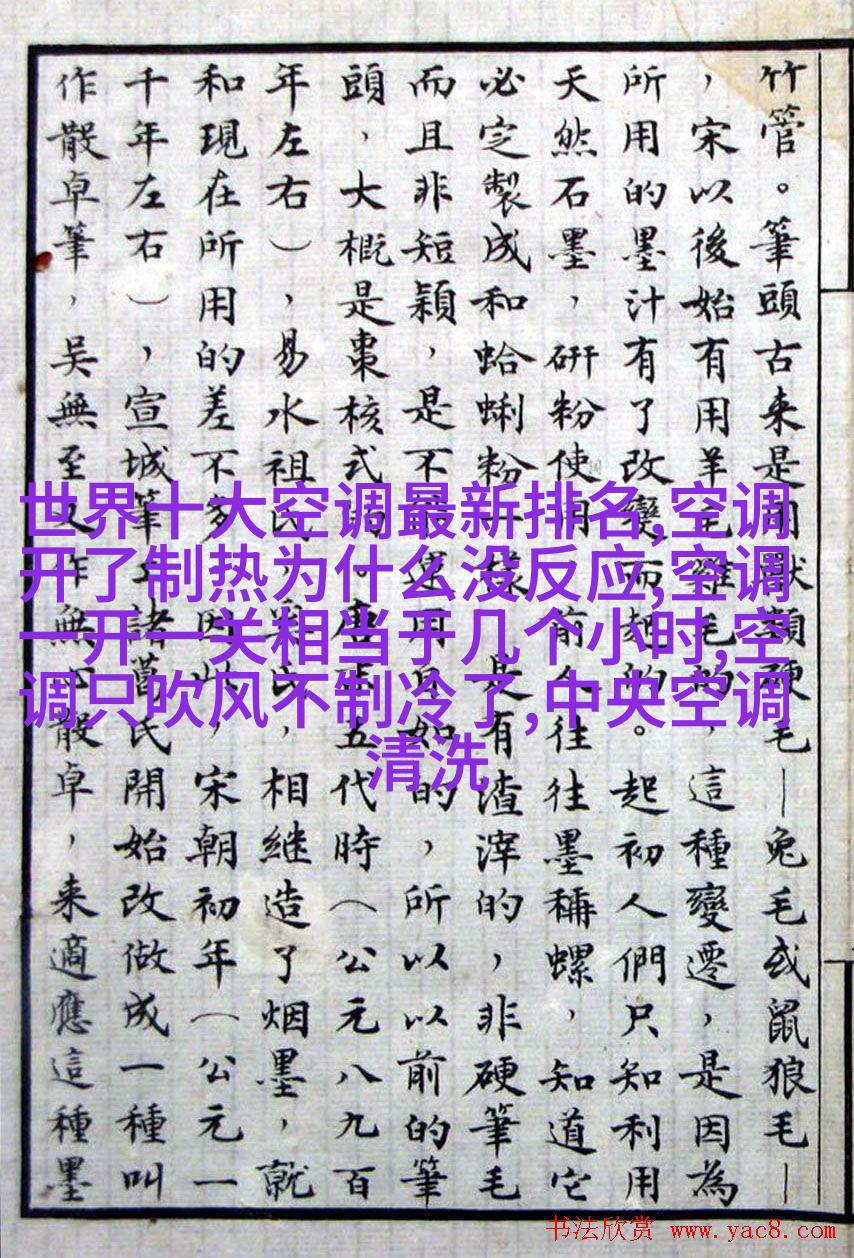 竹管。筆頭古来是用獸類硬毛—兔毛或鼠狼毛—
，宋以後始有用羊毛雞毛的，這種變遷，是因為
所用的墨汁有了改變而起的。起初人們只知利用
天然石墨，研粉使用，前人往往墨稱螺，知道它
必定製成和蛤蜊粉一樣，是有渣滓的，非硬筆毛
而且非短穎，是不運用自如的，所以以前的筆
頭，大概是棗核式的。唐末五代時（公元八九百
年左右），易水祖氏，氏，相継造了烟墨，就
和現在所用的差不多。因此，宋朝初年（公元一
千年左右），宣城筆工諸葛氏開始改做成一種叫
作散卓筆，吳無至又作無心散卓，来適應這種墨
世界十大空调最新排名,空调
开了制热为什么没反应,空调
一开一关相当于几个小时,空
调只吹风不制冷了,中央空调
清洗
书法欣赏 www.yac8.com